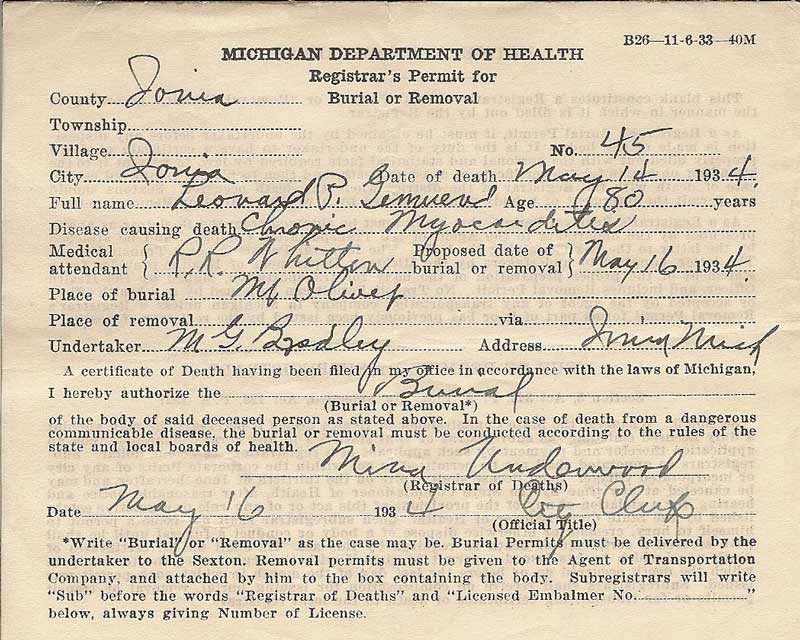 B26—11-6-33—40M
MICHIGAN DEPARTMENT OF HEALTH
Registrar's Permit for
Burial or Removal
County Ionia
Township
Village
No. 45
City Ionia Date of death May 14 1934.
Full name Leonard P. Age 80 years
Disease causing death Chronic Myocarditis
Medical attendant } R. R. Whitten Proposed date of burial or removal } May 16 1934.
Place of burial Mt Olivet
Place of removal via
Undertaker M G Bradley Address Ionia Mich
A certificate of Death having been filed in my office in accordance with the laws of Michigan,
I hereby authorize the Burial
(Burial or Removal*)
of the body of said deceased person as stated above. In the case of death from a dangerous
communicable disease, the burial or removal must be conducted according to the rules of the
state and local boards of health.
Mina Underwood
(Registrar of Deaths)
Date May 16 1934 City Clerk
(Official Title)
*Write "Burial" or "Removal" as the case may be. Burial Permits must be delivered by the
undertaker to the Sexton. Removal permits must be given to the Agent of Transportation
Company, and attached by him to the box containing the body. Subregistrars will write
"Sub" before the words "Registrar of Deaths" and "Licensed Embalmer No. "
below, always giving Number of License.